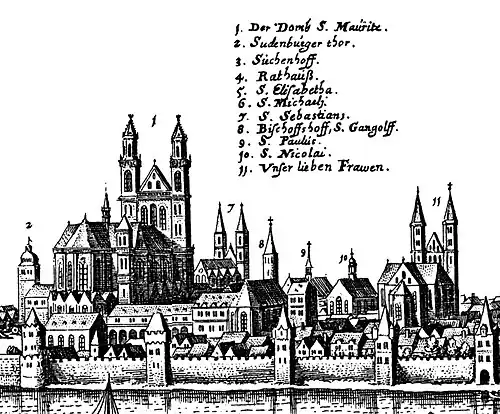 1. Der Domb S. Mauritz.
2. Sudenburger thor.
3. Süchenhoff.
4. Rathauß.
5. S. Elisabetha.
6. S. Michaeli.
7. S. Sebastians.
8. Bischoffshoff, S. Gangolff.
9. S. Paulus.
10. S. Nicolai.
11. Vnser lieben Frawen.
1
2
7
8
9
10
11